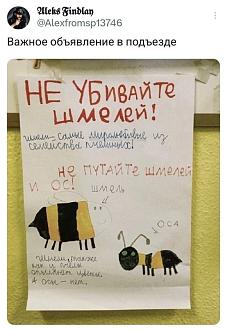 Aleks Findlay
@Alexfromsp13746
Важное объявление в подъезде
НЕ УБИВАЙТЕ
ШМЕЛЕЙ!
шмели - самые миролюбивые из
семейства пчелиных!
не ПУТАЙТЕ шмелей
и ОС!
шмель
ОСА
Шмели, также
как и пчёлы
опыляют цветы,
А осы - нет.